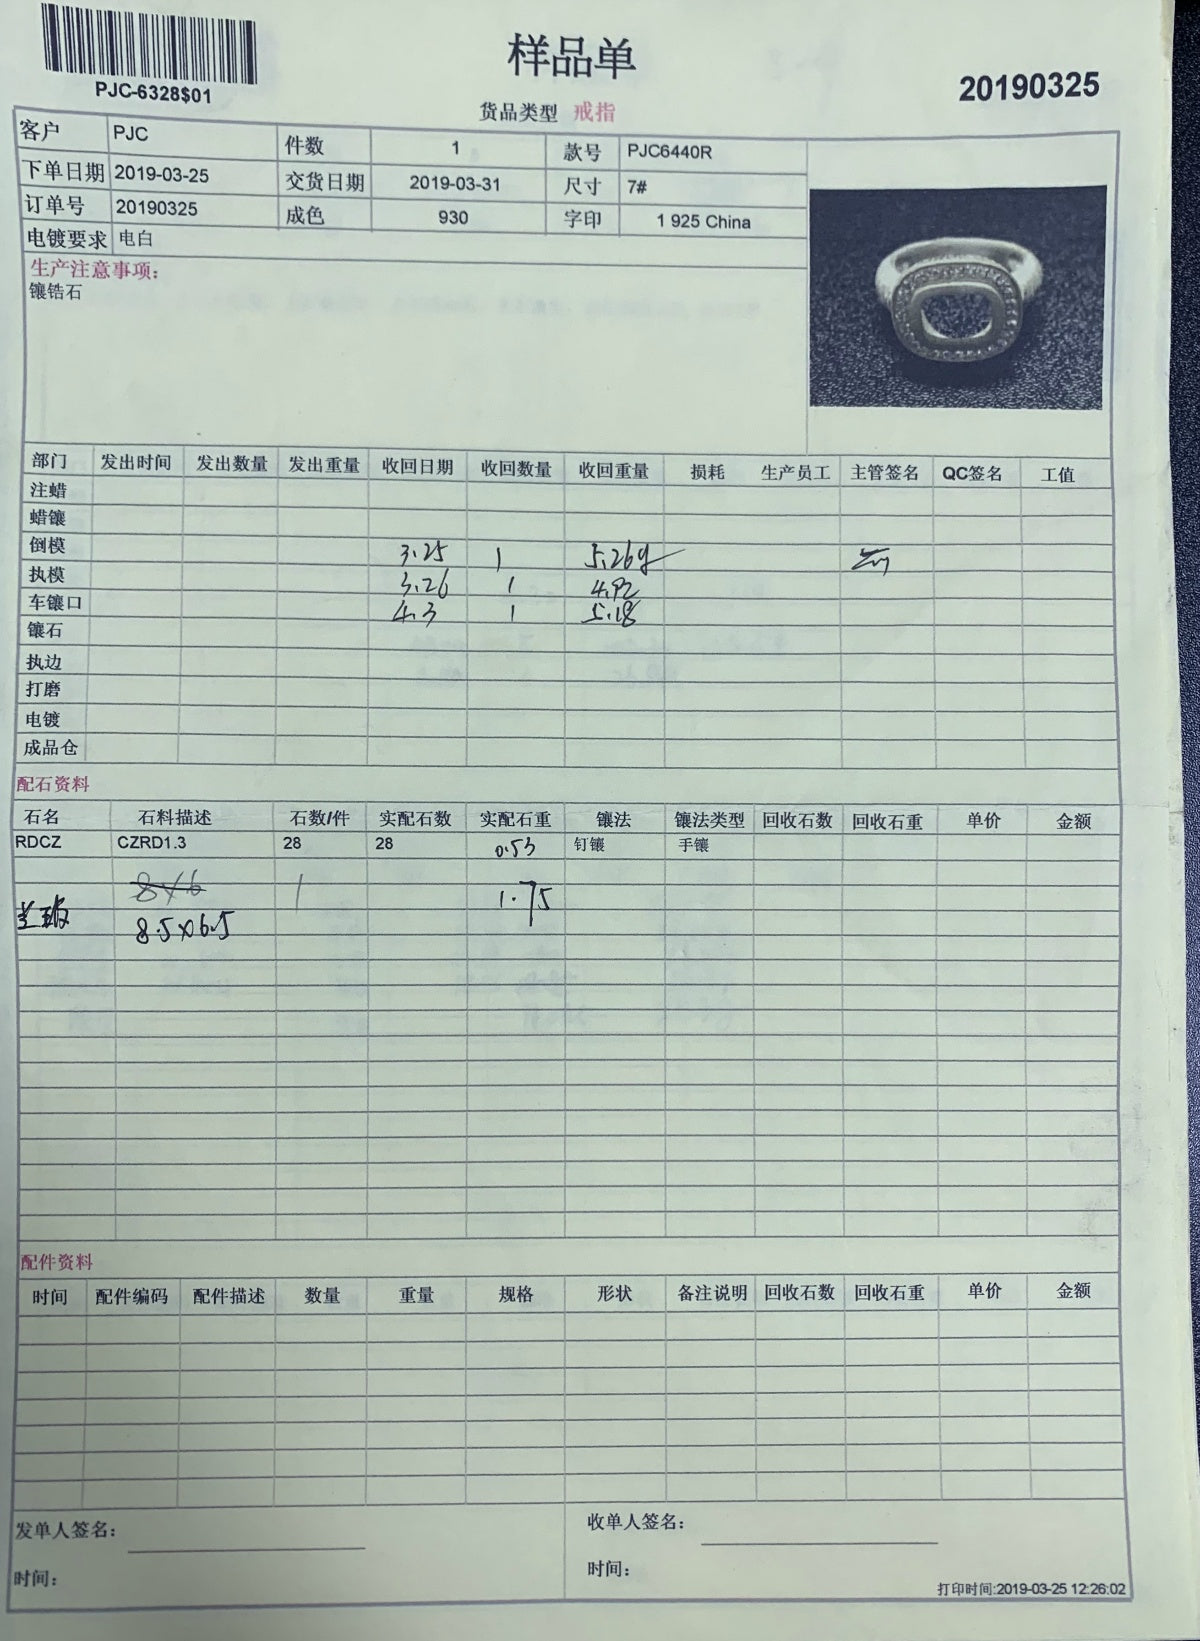 样品单
PJC-6328$01
20190325
货品类型 戒指
客户 PJC 件数 1 款号 PJC6440R
下单日期 2019-03-25 交货日期 2019-03-31 尺寸 7#
订单号 20190325 成色 930 字印 1 925 China
电镀要求 电白
生产注意事项:
镶锆石
部门 发出时间 发出数量 发出重量 收回日期 收回数量 收回重量 损耗 生产员工 主管签名 QC签名 工值
注蜡
蜡镶
倒模 3.25 1 5.26g
执模 3.26 1 4.92
车镶口 4.3 1 5.18
镶石
执边
打磨
电镀
成品仓
配石资料
石名 石料描述 石数/件 实配石数 实配石重 镶法 镶法类型 回收石数 回收石重 单价 金额
RDCZ CZRD1.3 28 28 0.53 钉镶 手镶
8×6 1 1.75
8.5×6.5
配件资料
时间 配件编码 配件描述 数量 重量 规格 形状 备注说明 回收石数 回收石重 单价 金额
发单人签名: 收单人签名:
时间: 时间:
打印时间:2019-03-25 12:26:02